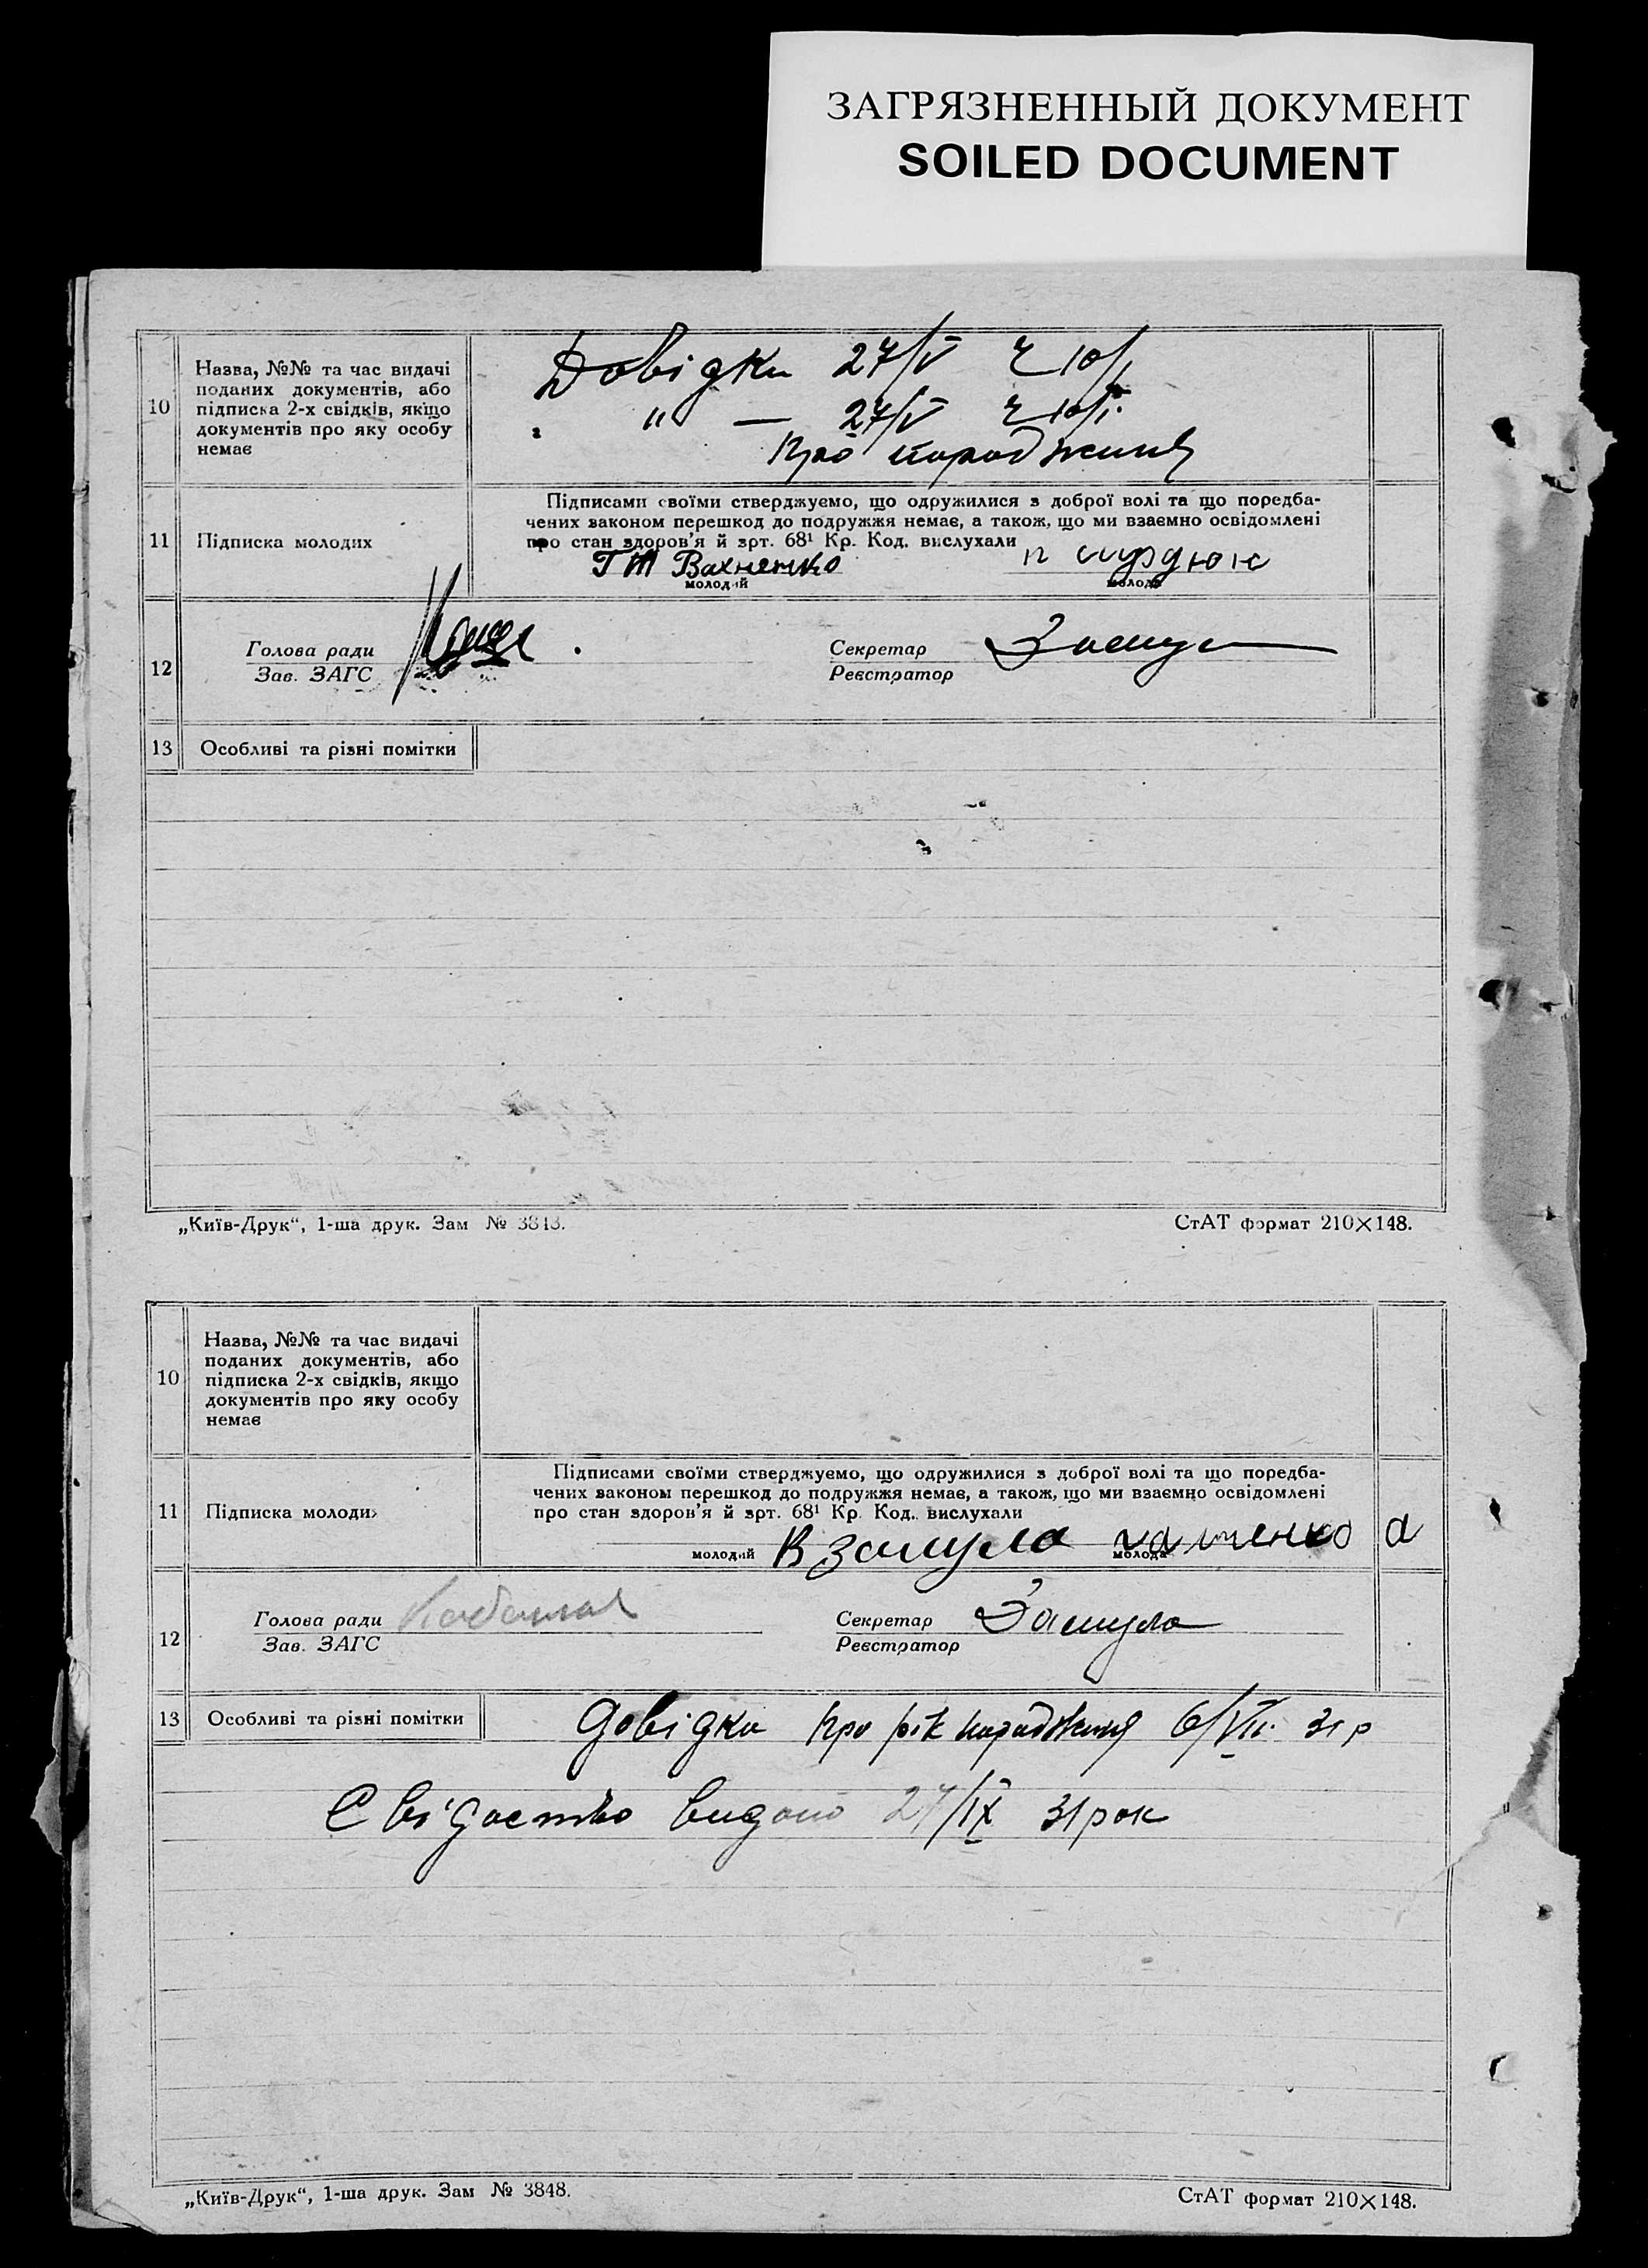 ЗАГРЯЗНЕННЫЙ ДОКУМЕНТ
SOILED DOCUMENT
10
Назва, №№ та час видачі
поданих документів, або
підписка 2-х свідків, якщо
документів про яку особу
немає
Довідки 27/V
" — 27/V
Про народження
11
Підписка молодих
Підписами своїми стверджуємо, що одружилися з доброї волі та що поредба-
чених законом перешкод до подружжя немає, а також, що ми взаємно освідомлені
про стан здоров'я й зрт. 68¹ Кр. Код. вислухали
Г Т Вахненко
молодий
молода
12
Голова ради
Зав. ЗАГС
Секретар
Реєстратор
13
Особливі та різні помітки
„Київ-Друк“, 1-ша друк. Зам № 3848.
СтАТ формат 210×148.
10
Назва, №№ та час видачі
поданих документів, або
підписка 2-х свідків, якщо
документів про яку особу
немає
11
Підписка молодих
Підписами своїми стверджуємо, що одружилися з доброї волі та що поредба-
чених законом перешкод до подружжя немає, а також, що ми взаємно освідомлені
про стан здоров'я й зрт. 68¹ Кр. Код. вислухали
молодий В Замула молода
12
Голова ради
Зав. ЗАГС
Секретар Замула
Реєстратор
13
Особливі та різні помітки
Довідка про рік народження 6/VII 31 р
Свідоство видано 27/IX 31 рок
„Київ-Друк“, 1-ша друк. Зам № 3848.
СтАТ формат 210×148.